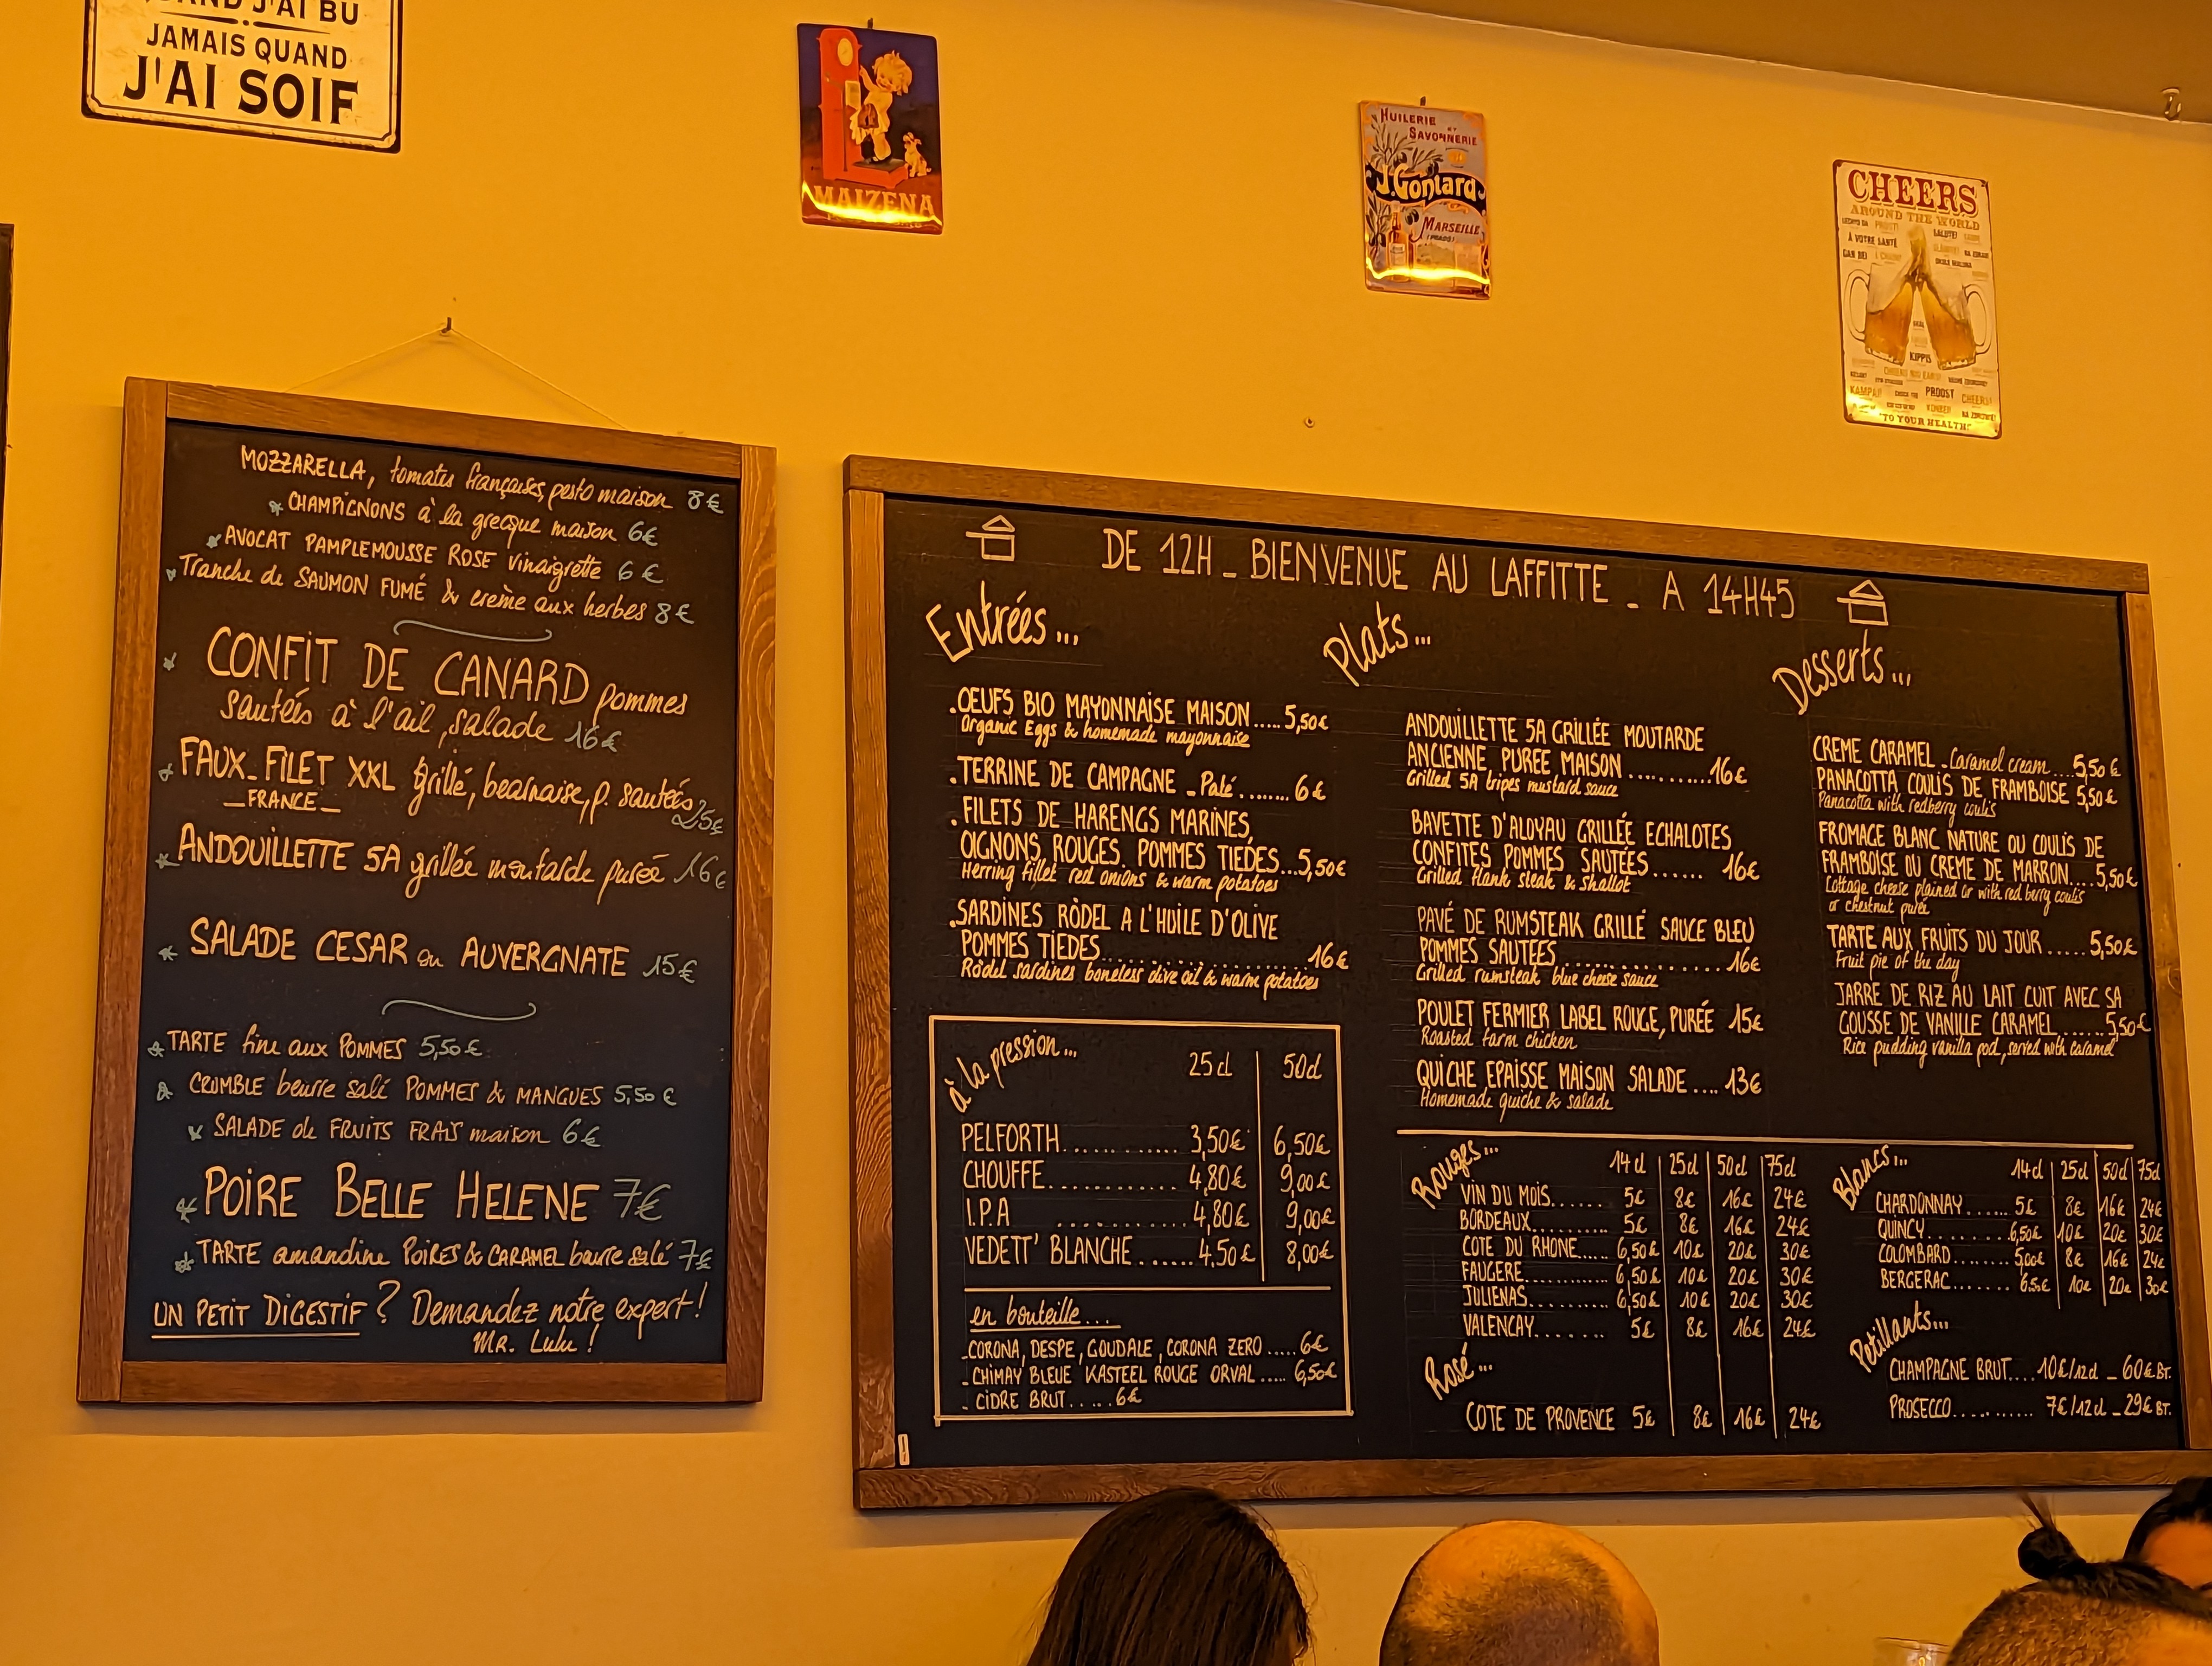 QUAND J'AI BU
JAMAIS QUAND
J'AI SOIF
MAIZENA
HUILERIE
ET
SAVONNERIE
J. Gontard
MARSEILLE
(PRADO)
CHEERS
AROUND THE WORLD
PROST!
SALUTE!
À VOTRE SANTÉ
GAN BEI
KIPPIS
KAMPAI!
PROOST
CHEERS!
"TO YOUR HEALTH!"
MOZZARELLA, tomates françaises, pesto maison 8€
CHAMPIGNONS à la grecque maison 6€
AVOCAT PAMPLEMOUSSE ROSE vinaigrette 6€
Tranche de SAUMON FUMÉ & crème aux herbes 8€
CONFIT DE CANARD pommes
sautées à l'ail, salade 16€
FAUX-FILET XXL grillé, bearnaise, p. sautées
_FRANCE_ 25€
ANDOUILLETTE 5A grillée moutarde purée 16€
SALADE CESAR ou AUVERGNATE 15€
TARTE fine aux POMMES 5,50€
CRUMBLE beurre salé POMMES & MANGUES 5,50€
SALADE de FRUITS FRAIS maison 6€
POIRE BELLE HELENE 7€
TARTE amandine POIRES & CARAMEL beurre salé 7€
UN PETIT DIGESTIF ? Demandez notre expert!
Mr. Lulu!
DE 12H _ BIENVENUE AU LAFFITTE _ A 14H45
Entrées...
.OEUFS BIO MAYONNAISE MAISON.....5,50€
Organic Eggs & homemade mayonnaise
.TERRINE DE CAMPAGNE _ Paté........6€
.FILETS DE HARENGS MARINES,
OIGNONS ROUGES. POMMES TIEDES...5,50€
Herring fillet red onions & warm potatoes
.SARDINES RÖDEL A L'HUILE D'OLIVE
POMMES TIEDES......................16€
Rödel sardines boneless olive oil & warm potatoes
Plats...
ANDOUILLETTE 5A GRILLÉE MOUTARDE
ANCIENNE PUREE MAISON..........16€
Grilled 5A tripes mustard sauce
BAVETTE D'ALOYAU GRILLÉE ECHALOTES
CONFITES POMMES SAUTÉES...... 16€
Grilled flank steak & shallot
PAVÉ DE RUMSTEAK GRILLÉ SAUCE BLEU
POMMES SAUTEES..................16€
Grilled rumsteak blue cheese sauce
POULET FERMIER LABEL ROUGE, PURÉE 15€
Roasted farm chicken
QUICHE EPAISSE MAISON SALADE.... 13€
Homemade quiche & salade
Desserts...
CREME CARAMEL _ Caramel cream....5,50€
PANACOTTA COULIS DE FRAMBOISE 5,50€
Panacotta with redberry coulis
FROMAGE BLANC NATURE OU COULIS DE
FRAMBOISE OU CREME DE MARRON....5,50€
Cottage cheese plained or with red berry coulis
or chestnut purée
TARTE AUX FRUITS DU JOUR.....5,50€
Fruit pie of the day
JARRE DE RIZ AU LAIT CUIT AVEC SA
GOUSSE DE VANILLE CARAMEL......5,50€
Rice pudding vanilla pod, served with caramel
à la pression... 25cl 50cl
PELFORTH............ 3,50€ 6,50€
CHOUFFE............. 4,80€ 9,00€
I.P.A ............. 4,80€ 9,00€
VEDETT' BLANCHE......4.50€ 8,00€
en bouteille...
_CORONA, DESPE, GOUDALE, CORONA ZERO.....6€
_CHIMAY BLEUE KASTEEL ROUGE ORVAL.....6,50€
_ CIDRE BRUT.....6€
Rouges... 14cl 25cl 50cl 75cl
VIN DU MOIS...... 5€ 8€ 16€ 24€
BORDEAUX......... 5€ 8€ 16€ 24€
COTE DU RHONE.... 6,50€ 10€ 20€ 30€
FAUGERE.......... 6,50€ 10€ 20€ 30€
JULIENAS......... 6,50€ 10€ 20€ 30€
VALENCAY....... 5€ 8€ 16€ 24€
Rosé...
COTE DE PROVENCE 5€ 8€ 16€ 24€
Blancs... 14cl 25cl 50cl 75cl
CHARDONNAY...... 5€ 8€ 16€ 24€
QUINCY.......... 6,50€ 10€ 20€ 30€
COLOMBARD....... 5,00€ 8€ 16€ 24€
BERGERAC........ 6.50€ 10€ 20€ 30€
Petillants...
CHAMPAGNE BRUT....10€/12cl _ 60€ BT.
PROSECCO........... 7€/12cl _ 29€ BT.